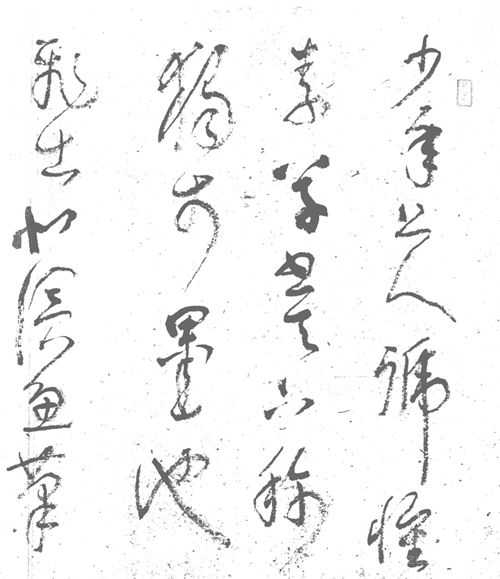 少年上人號懷
素草書天下稱
獨步墨池
飛出北溟魚筆